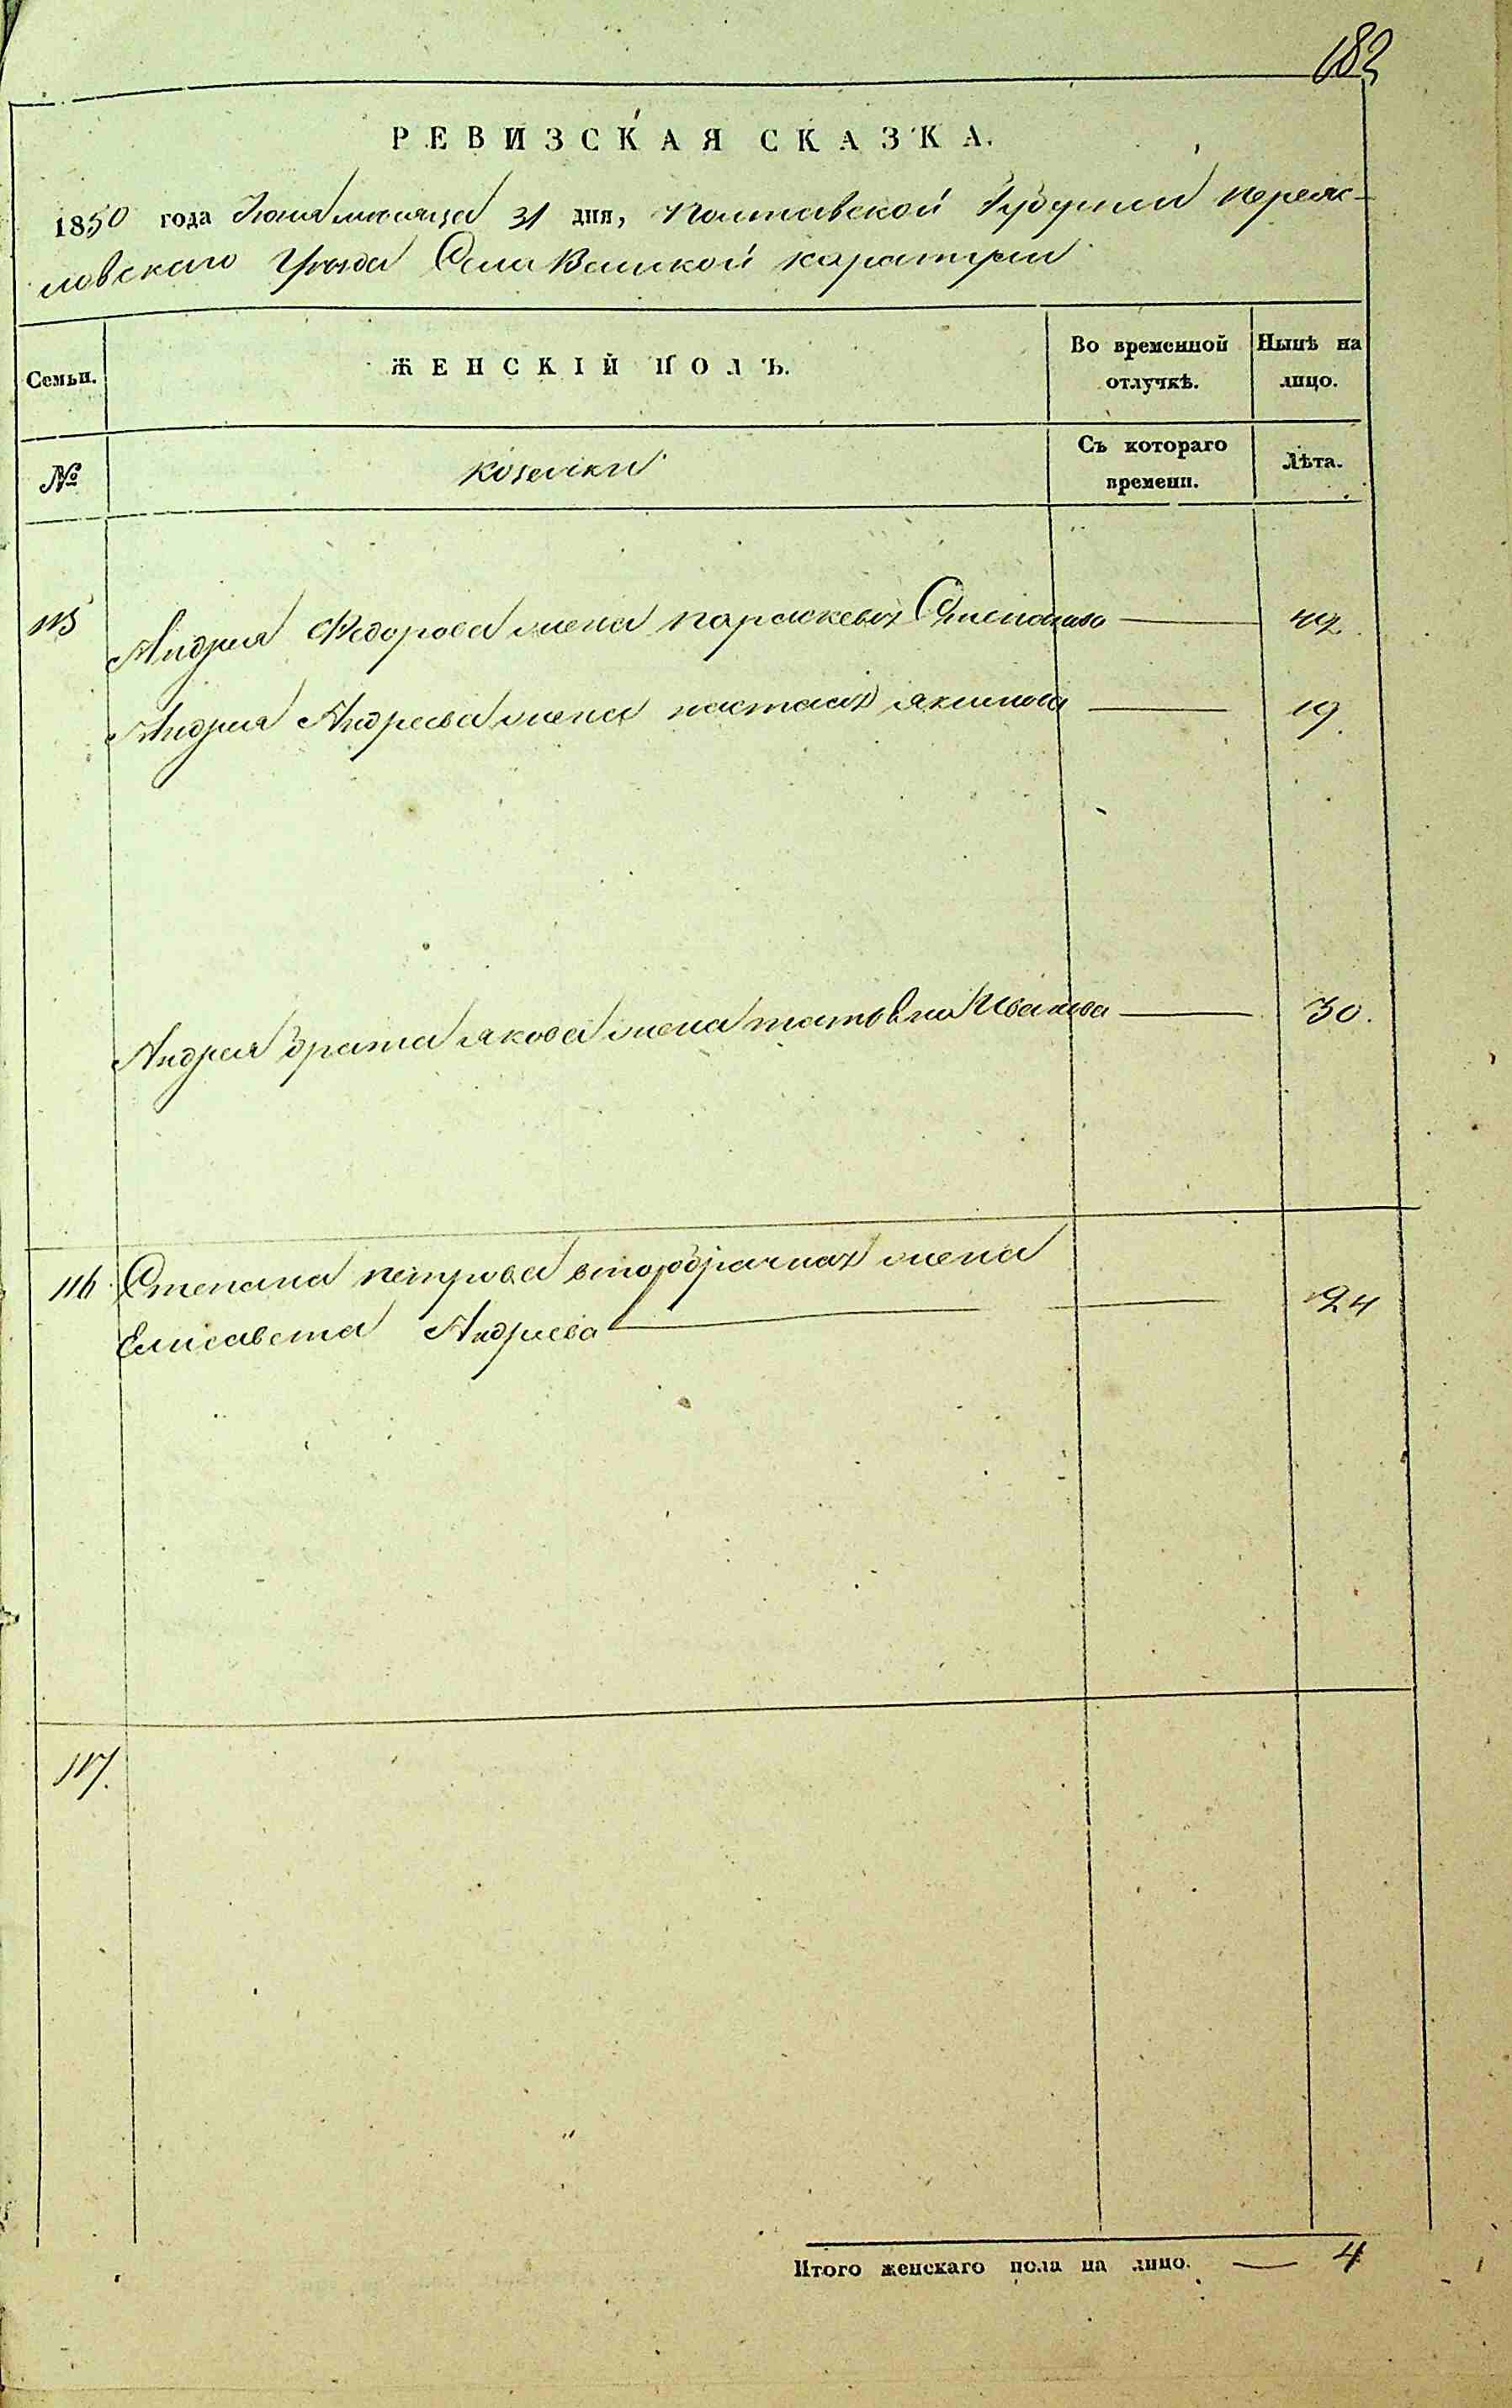 182
РЕВИЗСКАЯ СКАЗКА.
1850 года Июня месяца 31 дня, Полтавской Губернии Переяс-
ловскаго Уезда Села Великой Каратули
Семьи.
ЖЕНСКІЙ ПОЛЪ.
Во временной отлучкѣ.
Нынѣ на лицо.
№
Козачки
Съ котораго времени.
Лѣта.
115 Андрея Федорова жена Параскевия Степанова — 42.
Андрея Андреева жена Настасия Якимова — 19.
Андрея брата Якова жена Татовна Иванова — 30.
116 Степана Петрова второбрачная жена
Елисавета Андреева — — 24
117.
Итого женскаго пола на лицо. — 4